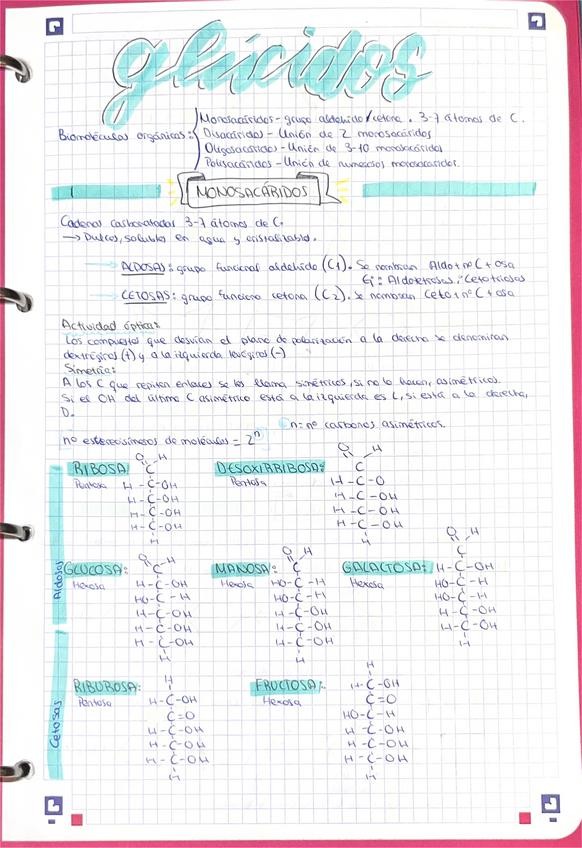 glúcidos
Biomoléculas orgánicas:
Monosacáridos - grupo aldehído/cetona. 3-7 átomos de C.
Disacáridos - Unión de 2 monosacáridos
Oligosacáridos - Unión de 3-10 monosacáridos
Polisacáridos - Unión de numerosos monosacáridos.
MONOSACÁRIDOS
Cadenas carbonatadas 3-7 átomos de C.
→ Dulces, solubles en agua y cristalizables.
ALDOSAS: grupo funcional aldehído (C1). Se nombran Aldo + nº C + osa
Ej: Aldotetrosas, Cetotriosas
CETOSAS: grupo funciono cetona (C2). Se nombran Ceto + nº C + osa
Actividad óptica:
Los compuestos que desvían el plano de polarización a la derecha se denominan
dextrógiros (+) y a la izquierda levógiros (-)
Simetría:
A los C que repiten enlaces se les llama simétricos, si no lo hacen, asimétricos.
Si el OH del último C asimétrico está a la izquierda es L, si está a la derecha,
D.
n = nº carbonos asimétricos.
nº estereoisómeros de moléculas = 2ⁿ
Aldosas
RIBOSA
Pentosa
O H
C
H-C-OH
H-C-OH
H-C-OH
H-C-OH
H
DESOXIRRIBOSA:
Pentosa
O H
C
H-C-O
H-C-OH
H-C-OH
H-C-OH
H
GLUCOSA:
Hexosa
O H
C
H-C-OH
HO-C-H
H-C-OH
H-C-OH
H-C-OH
H
MANOSA:
Hexosa
O H
C
HO-C-H
HO-C-H
H-C-OH
H-C-OH
H-C-OH
H
GALACTOSA:
Hexosa
O H
C
H-C-OH
HO-C-H
HO-C-H
H-C-OH
H-C-OH
H
Cetosas
RIBUROSA:
Pentosa
H
H-C-OH
C=O
H-C-OH
H-C-OH
H-C-OH
H
FRUCTOSA:
Hexosa
H
H-C-OH
C=O
HO-C-H
H-C-OH
H-C-OH
H-C-OH
H